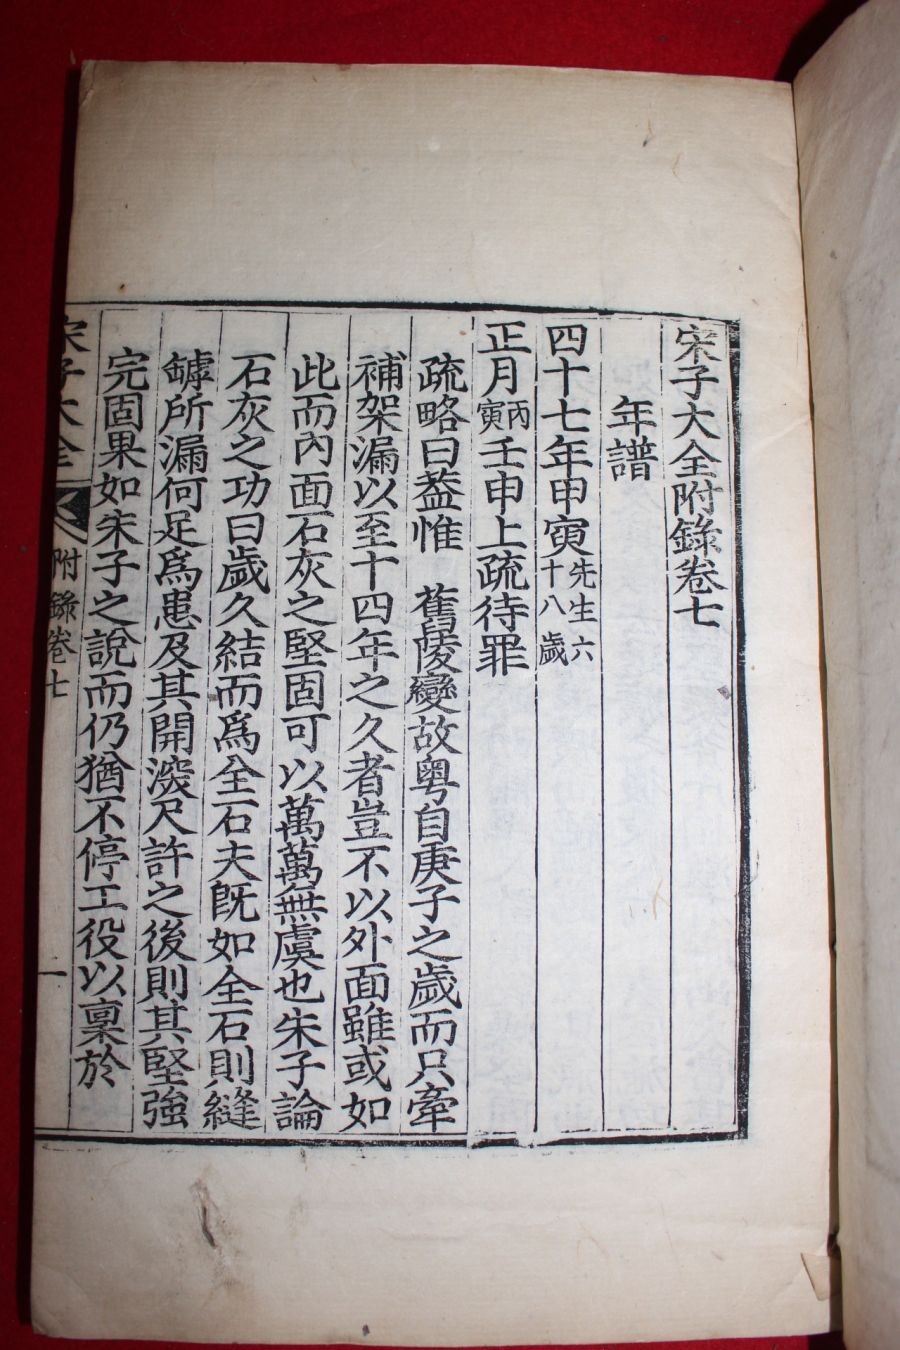 宋子大全附錄卷七
年譜
四十七年甲寅先生六十八歲
正月丙寅壬申上疏待罪
疏略曰葢惟 舊陵變故粤自庚子之歲而只牽
補架漏以至十四年之久者豈不以外面雖或如
此而內面石灰之堅固可以萬萬無虞也朱子論
石灰之功曰歲久結而爲全石夫旣如全石則縫
罅所漏何足爲患及其開深尺許之後則其堅強
完固果如朱子之說而仍猶不停工役以稟於
宋子大全 附錄卷七 一